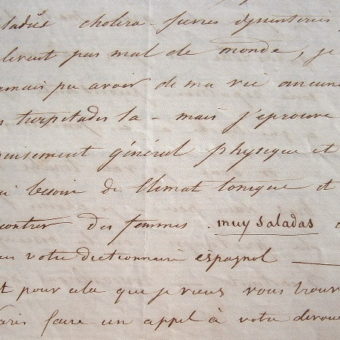 choléra - fièvres dysenteries
pas mal de monde, je
pu avoir de ma vie aucune
turpitudes là - mais j'éprouve
général physique et
besoin de climat tonique et
des femmes muy saladas
votre dictionnaire espagnol
pour cela que je viens vous trouv
faire un appel à votre dévou